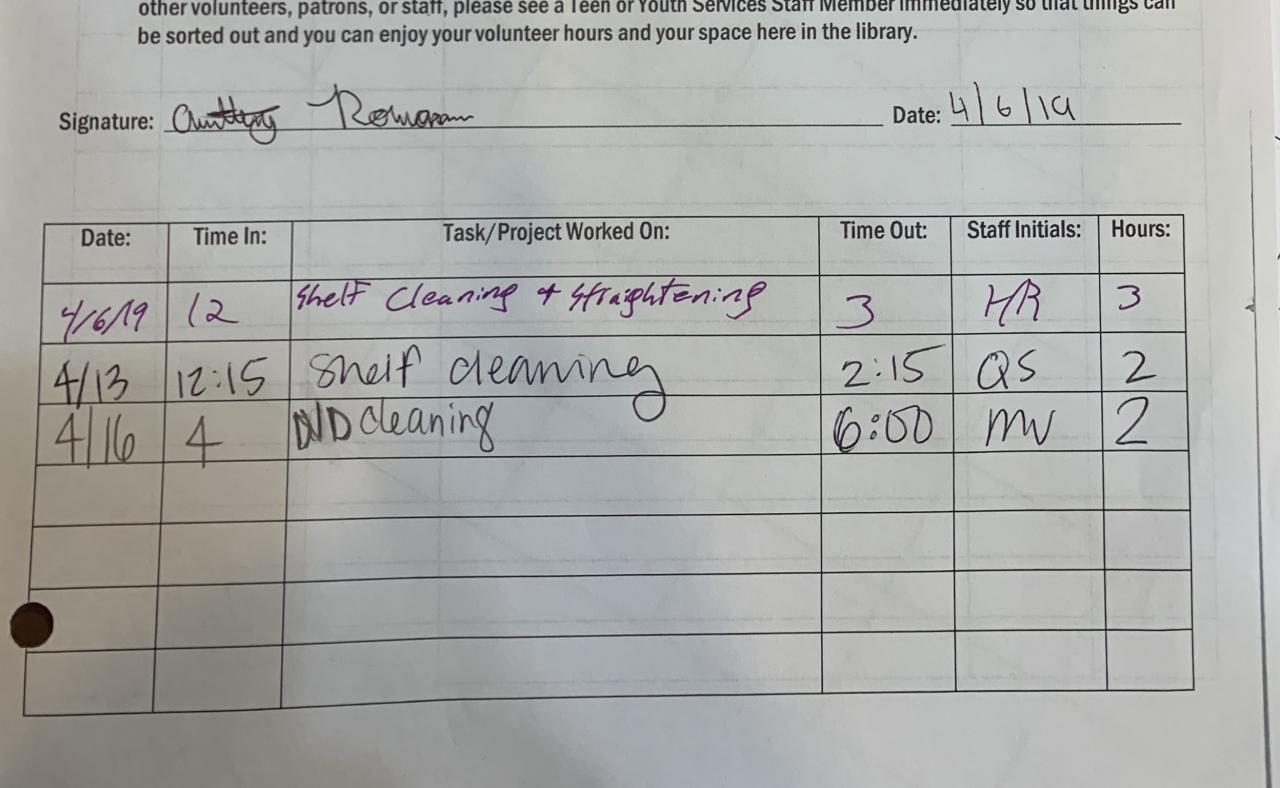 other volunteers, patrons, or staff, please see a Teen or Youth Services Staff Member immediately so that things can
be sorted out and you can enjoy your volunteer hours and your space here in the library.
Signature: Date: 4/6/19
Date: Time In: Task/Project Worked On: Time Out: Staff Initials: Hours:
4/6/19 12 Shelf Cleaning & Straightening 3 HR 3
4/13 12:15 Shelf cleaning 2:15 QS 2
4/16 4 cleaning 6:00 MV 2